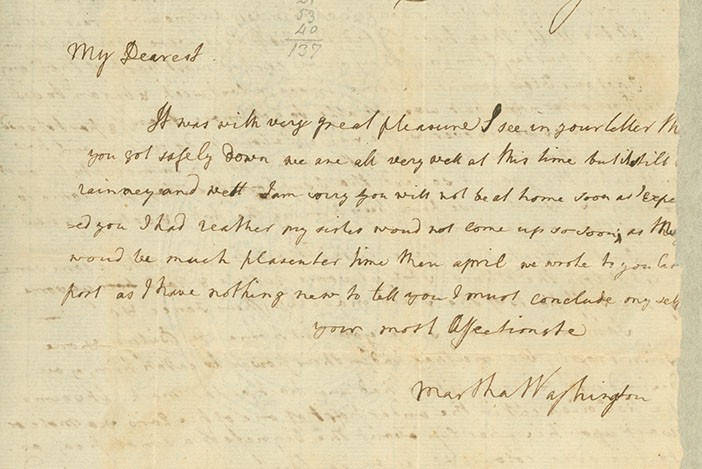 53
40
137
My Dearest
It was with very great pleasure I see in your letter th
you got safely down we are all very well at this time but it still
rainney and wett I am sorry you will not be at home soon as I expe
=ed you I had reather my sister woud not come up so soon, as May
woud be much plasenter time than april we wrote to you las
port as I have nothing new to tell you I must conclude my self
your most Affectionate
Martha Washington